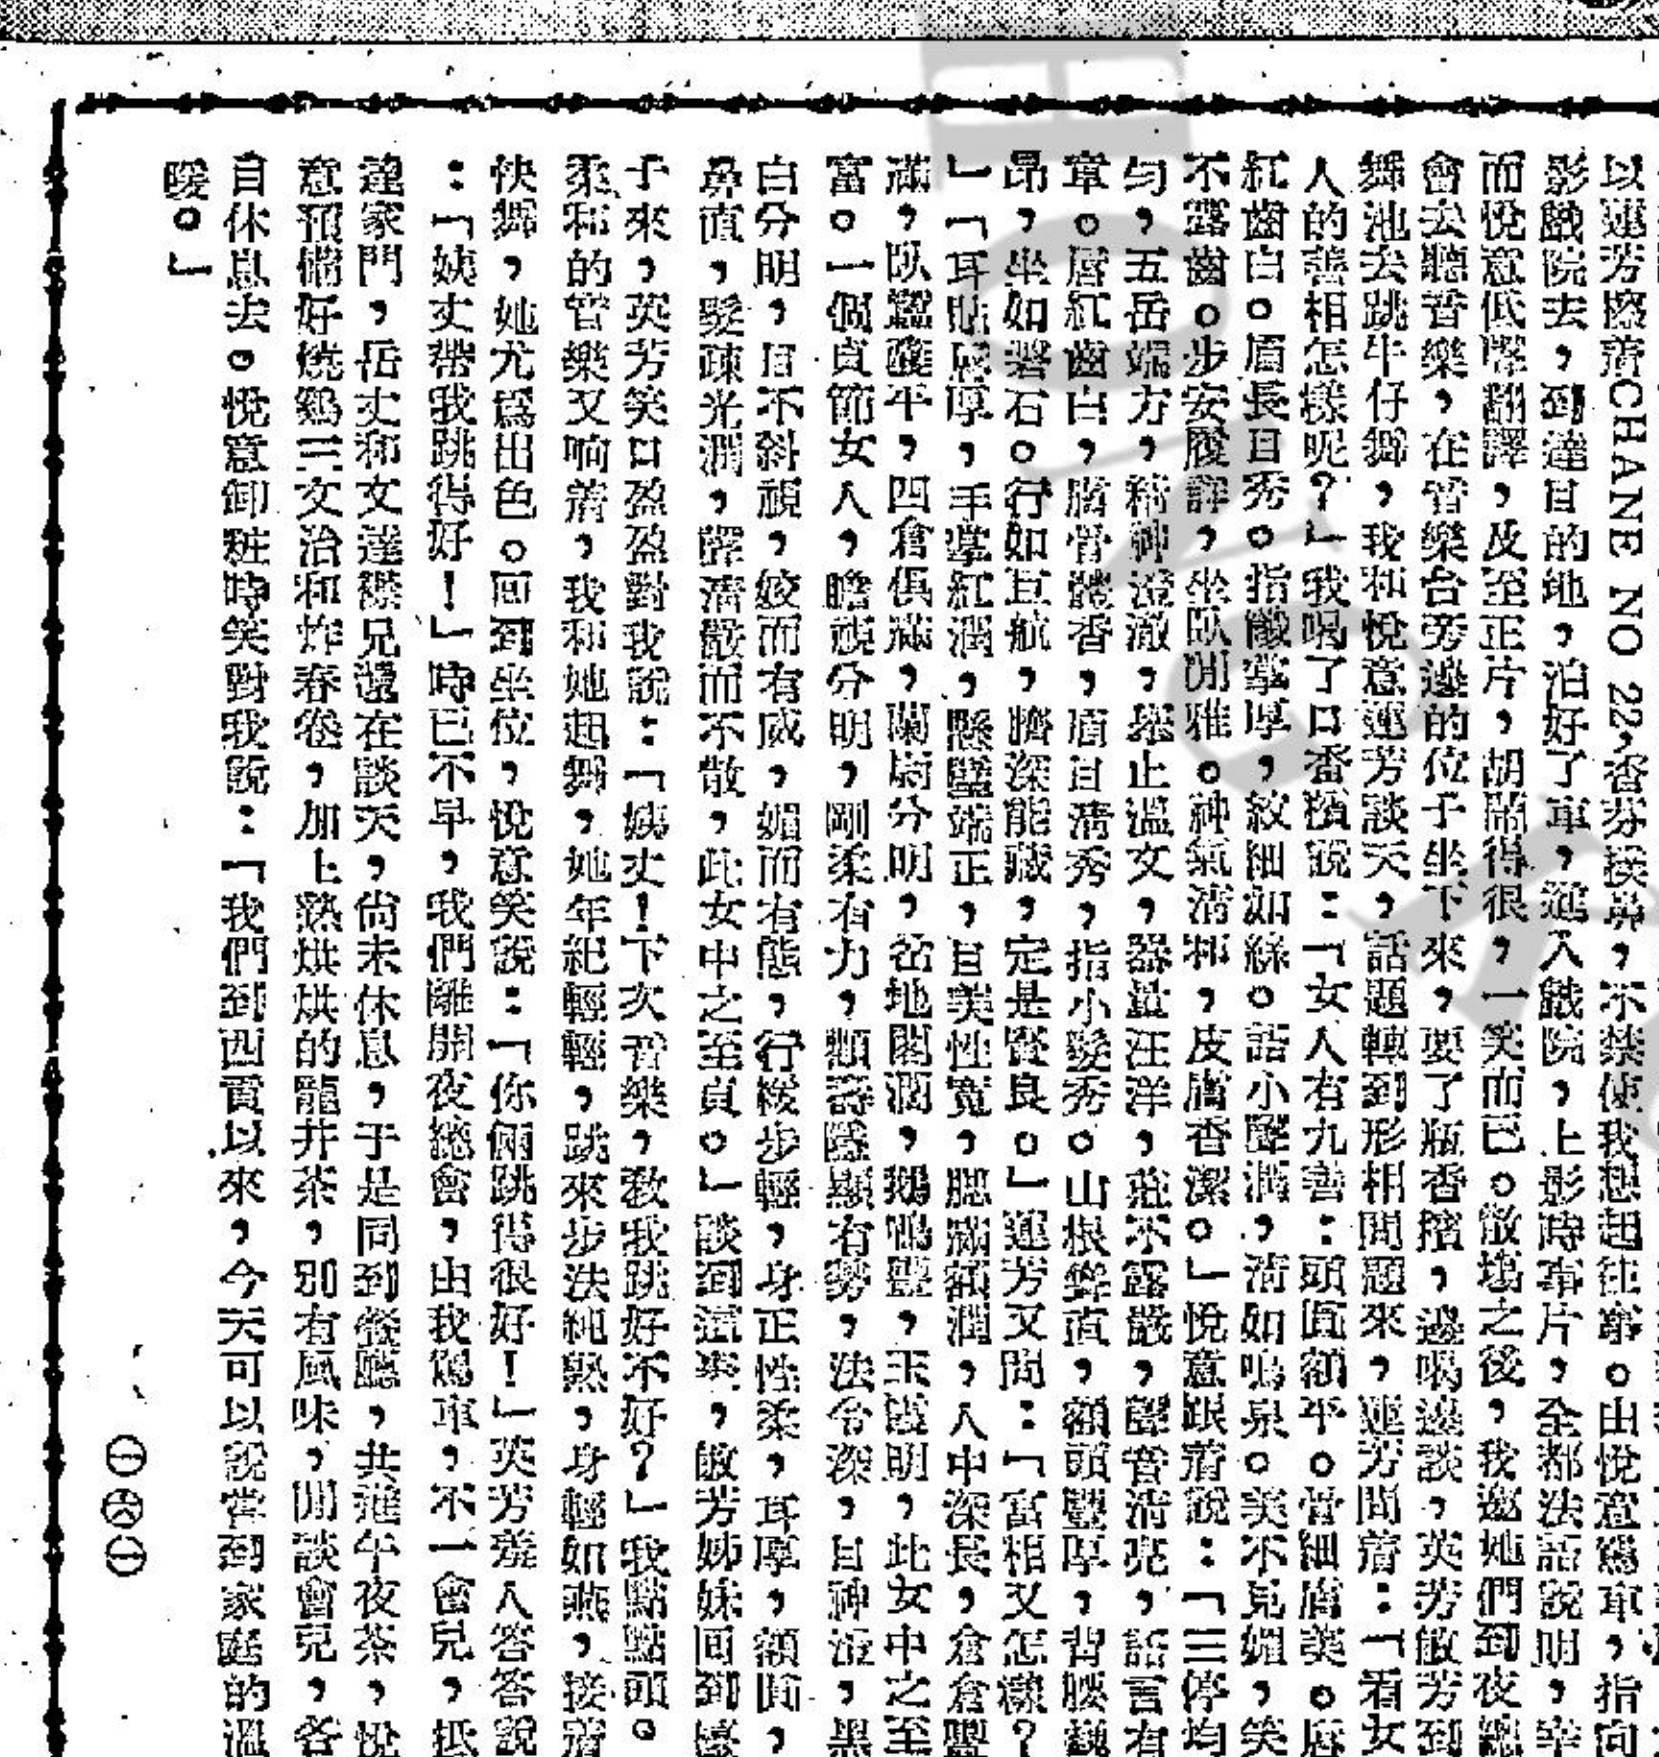 以蓮芳擦着CHANE NO 22,香芬撲鼻，不禁使我想起往事。由悅意駕車，指向
影戲院去，到達目的地，泊好了車，進入戲院，上影時事片，全都法語說明，幸
而悅意低聲翻譯，及至正片，胡鬧得很，一笑而已。散塲之後，我邀她們到夜總
會去聽音樂，在音樂台旁邊的位子坐下來，要了瓶香擯，邊喝邊談，英芳敏芳到
舞池去跳牛仔舞，我和悅意蓮芳談天，話題轉到形相問題來，蓮芳問着：「看女
人的善相怎樣呢？」我喝了口香檳說：「女人有九善：頭圓額平。骨細膚美。唇
紅齒白。眉長目秀。指纖掌厚，紋細如絲。語小聲淸，淸如鳴泉。美不見媚，笑
不露齒。步安履詳，坐臥閒雅。神氣淸和，皮膚香潔。」悅意跟着說：「三停均
勻，五岳端方，精神澄澈，舉止溫文，器量汪洋，莊不露嚴，聲音清亮，語言有
章。唇紅齒白，膚骨體香，眉目淸秀，指小髮秀。山根聳直，額頭豐厚，背腰巍
昂，坐如磐石。行如互航，臍深能藏，定是賢良。」蓮芳又問：「富相又怎樣？
」「耳貼唇厚，手掌紅潤，懸壁端正，目美性寬，腮滿額潤，人中深長，倉倉豐
滿，臥蠶隆平，四倉俱滿，蘭尉分明，岔地閣濶，鵝鴨豐，玉霞明，此女中之至
富。一個貞節女人，瞻視分明，剛柔有力，顴壽隱顯有勢，法令深，目神澄，黑
白分明，目不斜視，姣而有威，媚而有態，行緩步輕，身正性柔，耳厚，額圓，
鼻直，髮疎光潤，聲淸嚴而不散，此女中之至貞。」談到這裏，敏芳姊妹回到檯
子來，英芳笑口盈盈對我說：「姨丈！下次音樂，敎我跳好不好？」我點點頭。
柔和的音樂又响着，我和她起舞，她年紀輕輕，跳來步法純熟，身輕如燕，接着
快舞，她尤爲出色。回到坐位，悅意笑說：「你倆跳得很好！」英芳羞人答答說
：「姨丈帶我跳得好！」時已不早，我們離開夜總會，由我駕車，不一會兒，抵
達家門，岳丈和文達襟兄還在談天，尙未休息，于是同到餐廳，共進午夜茶，悅
意預備好燒鷄三文治和炸春卷，加上熱烘烘的龍井茶，別有風味，閒談會兒，各
自休息去。悅意卸粧時笑對我說：「我們到西貢以來，今天可以說嘗到家庭的溫
暖。」
㊀㊅㊀